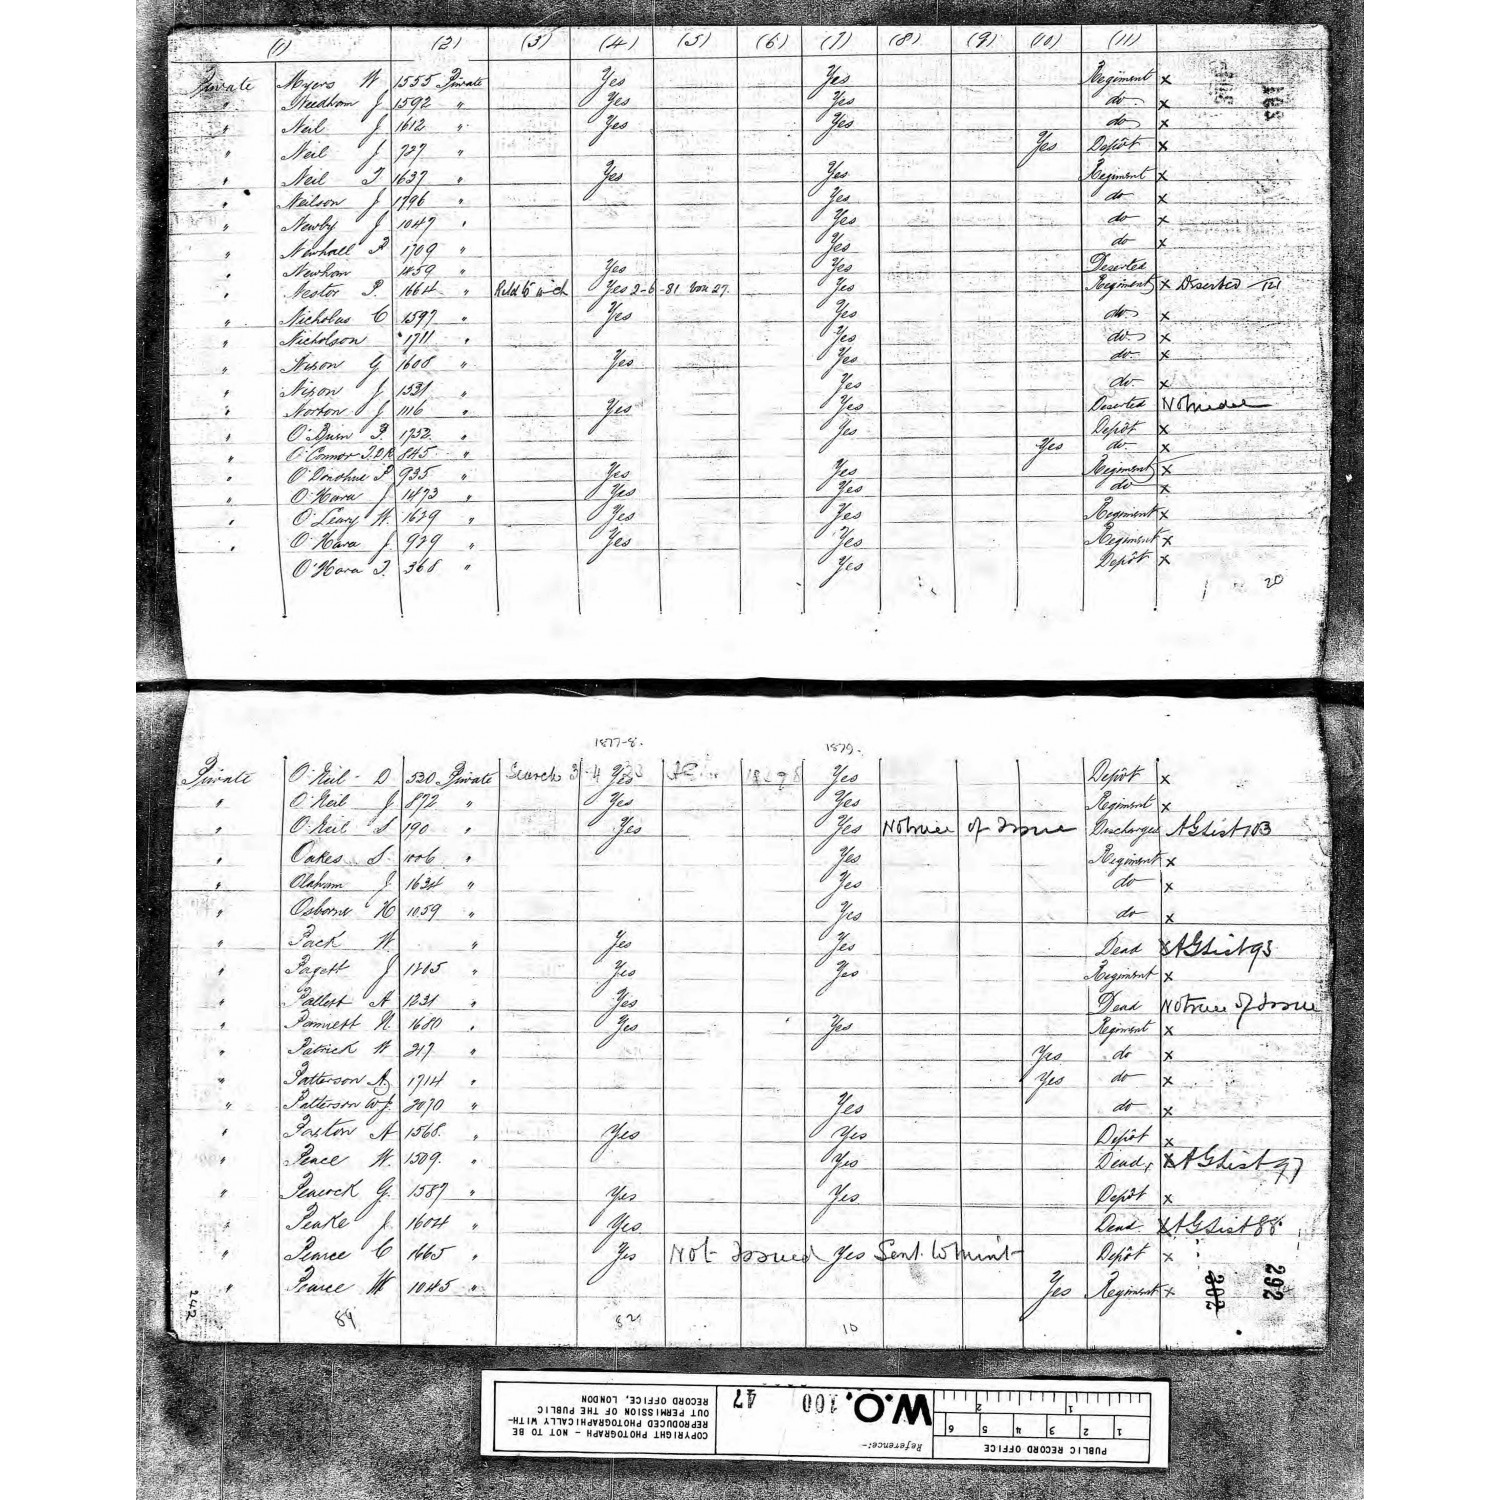 (1) (2) (3) (4) (5) (6) (7) (8) (9) (10) (11)
Private Myers W 1555 Private Yes Yes Regiment x
" Needham J 1592 " Yes Yes do x
" Neil J 1612 " Yes Yes do x
" Neil J 727 " Yes Depôt x
" Neil T 1637 " Yes Yes Regiment x
" Neilson J 1796 " Yes do x
" Newby J 1047 " Yes do x
" Newhall P 1709 " Yes do x
" Newham 1459 " Yes Yes Deserted
" Nestor P. 1664 " Yes 2-6-81 Yes Regiment x Deserted
" Nicholas C 1597 " Yes Yes do x
" Nicholson 1711 " Yes do x
" Nixon G 1608 " Yes Yes do x
" Nixon J 1531 " Yes do x
" Norton J 1116 " Yes Yes Deserted
" O'Brien P. 1752 " Yes Depôt x
" O'Connor 845 " Yes do x
" O'Donohue P 935 " Yes Yes Regiment x
" O'Hara J 1473 " Yes Yes do x
" O'Leary W. 1629 " Yes Yes Regiment x
" O'Hara J 929 " Yes Yes Regiment x
O'Hara T. 368 " Yes Depôt x
20
1877-8. 1879.
Private O'Neil D 520 Private Search Yes Yes Depôt x
" O'Neil J 872 " Yes Yes Regiment x
" O'Neil S 190 " Yes Yes No trace of Issue Discharged AG List 103
" Oakes S. 1006 " Yes Regiment x
" Olaham J 1634 " Yes do x
" Osborne H 1059 " Yes do x
" Pack W. " Yes Yes Dead x AG List 93
" Pagett J 1205 " Yes Yes Regiment x
" Pallett A 1231 " Yes Dead No trace of Issue
" Pannett N. 1680 " Yes Yes Regiment x
" Patrick W 217 " Yes do x
" Patterson A 1714 " Yes do x
" Patterson W J. 2070 " Yes do x
" Paxton A 1568 " Yes Yes Depôt x
" Peace W. 1509. " Yes Dead x AG List 97
" Peacock G. 1587 " Yes Yes Depôt x
" Peake J. 1604 " Yes Dead x AG List 88
" Pearce C 1665 " Yes Not Issued Yes Sent to Mint Depôt x
" Pearce W 1045 " Yes Regiment x
242 84 82 10 202 292
COPYRIGHT PHOTOGRAPH - NOT TO BE
REPRODUCED PHOTOGRAPHICALLY WITH-
OUT PERMISSION OF THE PUBLIC
RECORD OFFICE, LONDON
Reference:-
W.O. 100 47
PUBLIC RECORD OFFICE
1 2 3 4 5 6
1 2